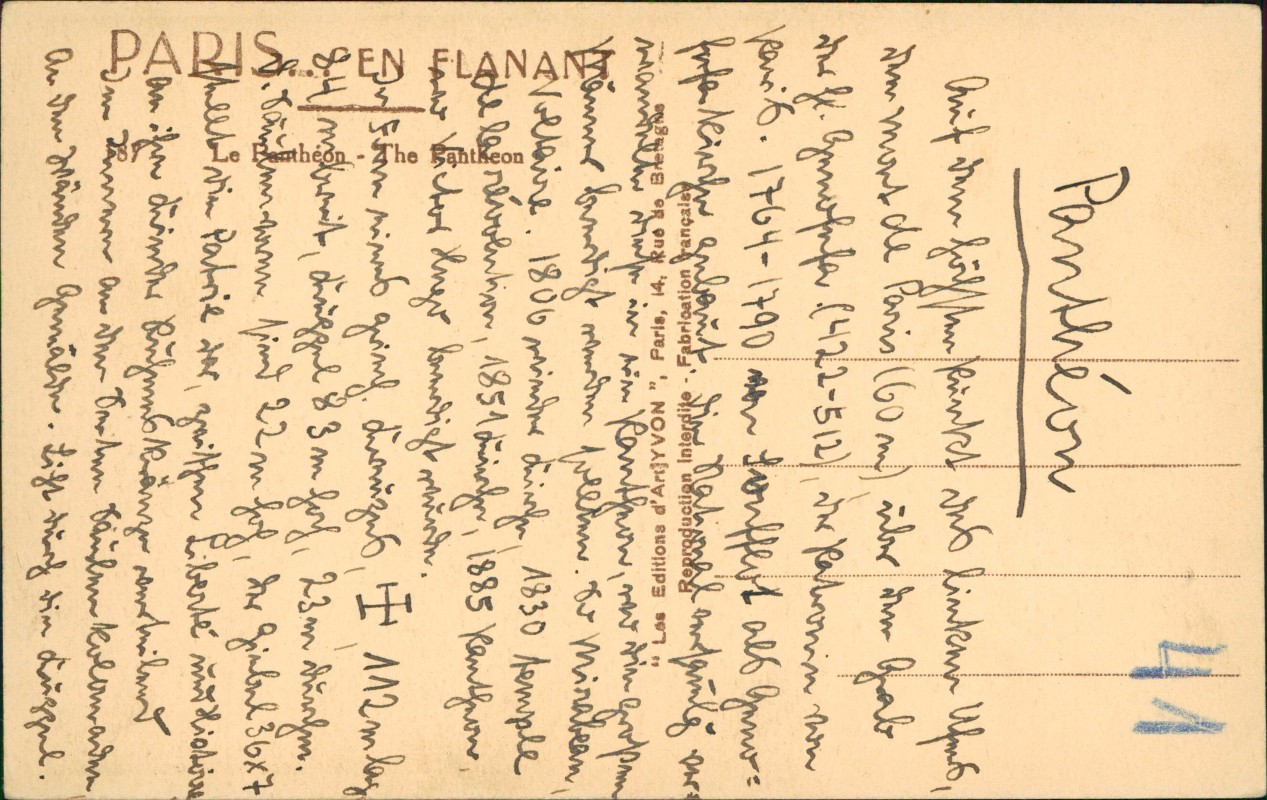 PARIS... EN FLANANT
87 Le Panthéon - The Pantheon
" Les Editions d'Art YVON ", Paris, 14, Rue de Bretagne
Reproduction Interdite - Fabrication française
Panthéon
Auf dem höchsten Punkt des linken Ufers,
dem mont de Paris (60 m) über dem Grab
der hl. Genofefa (422-512), der Patronin von
Paris. 1764-1790 von Soufflot als Geno=
fefakirche gebaut. Die National
wandelte sie in ein Pantheon, wo die großen
Männer beerdigt werden sollten. So Mirabeau,
Voltaire. 1806 wieder Kirche, 1830 temple
de la révolution, 1851 Kirche, 1885 Pantheon
wo Victor Hugo beerdigt wurde.
Der Bau eines griech. Kreuzes, 112 m lang
84 m breit, Kuppel 83 m hoch, 23 m Durchm.
Säulen vorn sind 22 m hoch, der Giebel 36x7
stellt die Patrie dar, zwischen Liberté und histoire
an ihre Kinder Ruhmeskränze verteilend
Im Innern an den Seiten Säulenkolonnaden
An den Wänden Gemälde. Licht durch die Kuppel.
VH